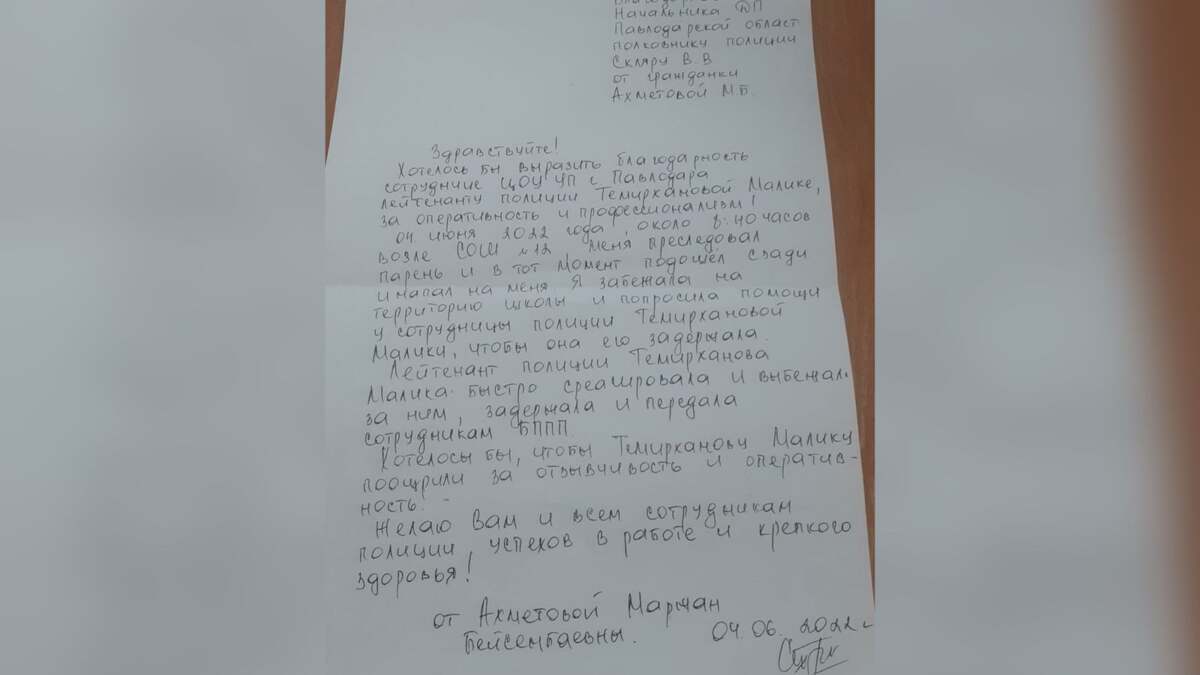 Начальника ДП
Павлодарской област
полковнику полиции
Скляру В.В
от гражданки
Ахметовой М.Б.
Здравствуйте!
Хотелось бы выразить благодарность
сотруднице ЦОУ УП г Павлодара
лейтенанту полиции Темирхановой Малике,
за оперативность и профессионализм!
04 июня 2022 года, около 8:40 часов
возле СОШ №12 меня преследовал
парень и в тот момент подошёл сзади
и напал на меня Я забежала на
территорию школы и попросила помощи
у сотрудницы полиции Темирхановой
Малики, чтобы она его задержала.
Лейтенант полиции Темирханова
Малика быстро среагировала и выбежал
за ним, задержала и передала
сотрудникам БППП
Хотелось бы, чтобы Темирханову Малику
поощрили за отзывчивость и оператив-
ность.
Желаю Вам и всем сотрудникам
полиции, успехов в работе и крепкого
здоровья!
от Ахметовой Маржан
Бейсембаевны. 04.06.2022 г